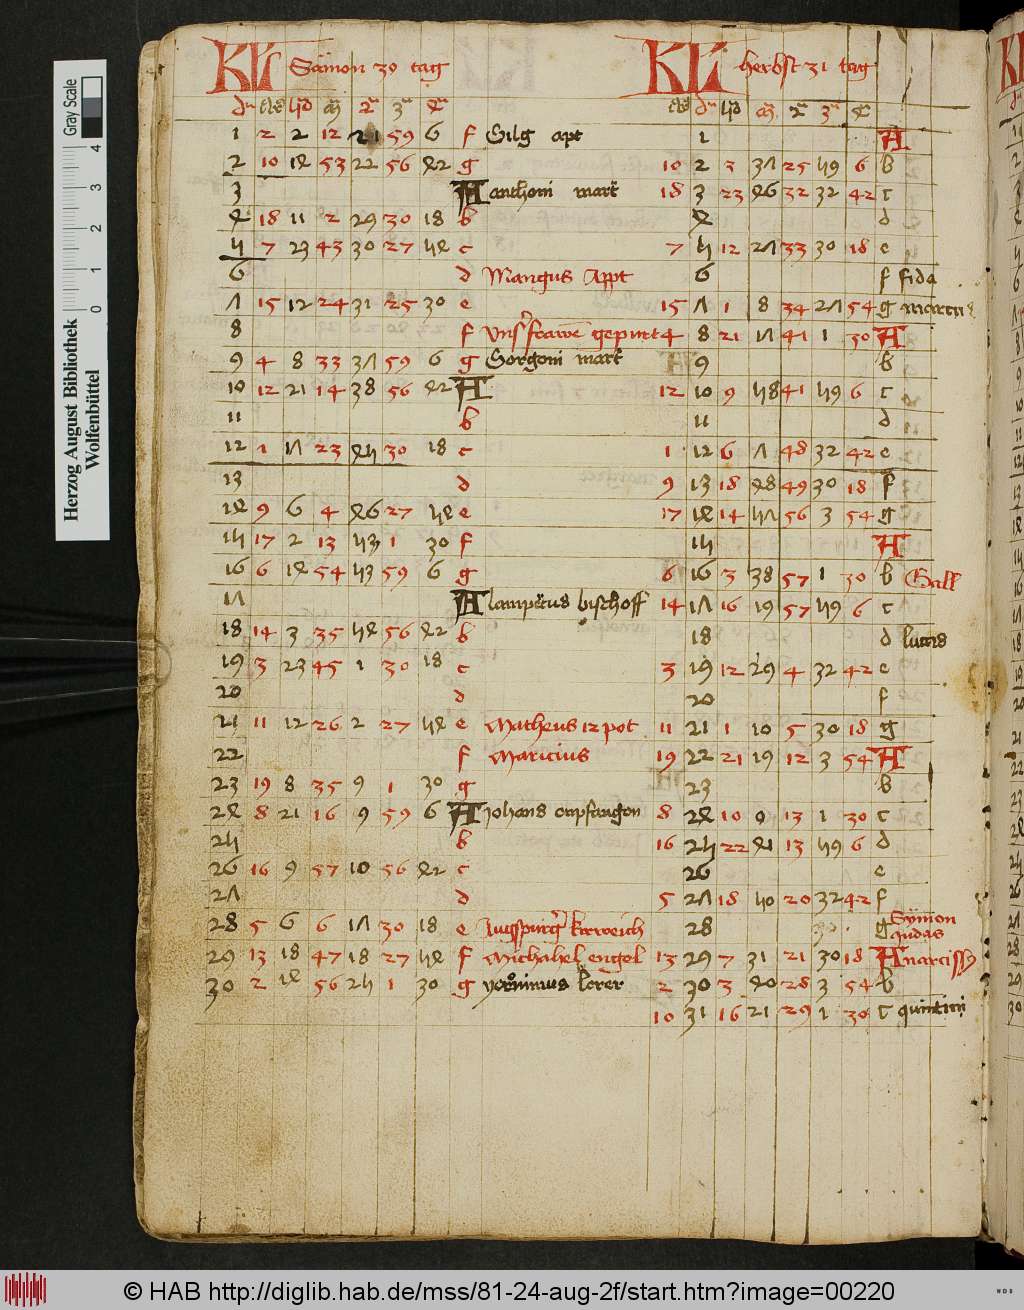 KL Sämon 30 tag
1 2 2 12 21 59 6 f Gilg apt
2 10 14 53 22 56 42 g
3 A anthoni mart
4 18 11 2 29 30 18 b
5 7 23 43 30 27 54 c
6 d Mangus Appt
7 15 12 24 31 25 30 e
8 f gepurt
9 4 8 33 37 59 6 g Gorgoni mart
10 12 21 14 38 56 42 A
11 b
12 1 17 23 45 30 18 c
13 d
14 9 6 4 46 27 54 e
15 17 2 13 53 1 30 f
16 6 14 54 53 59 6 g
17 A lampertus bischoff
18 14 3 35 54 56 42 b
19 3 23 45 1 30 18 c
20 d
21 11 12 26 2 27 54 e Matheus 12 pot
22 f Maricius
23 19 8 35 9 1 30 g
24 8 21 16 9 59 6 A Johans empfangen
25 b
26 16 9 57 10 56 42 c
27 d
28 5 6 6 17 30 18 e Augspurger kirweich
29 13 18 47 18 27 54 f Michahel engel
30 2 14 56 25 1 30 g yeronimus lerer
KL herbst 31 tag
1 A
10 2 3 37 25 59 6 b
18 3 23 46 32 32 42 c
4 d
7 5 12 27 33 30 18 e
6 f fida
15 7 1 8 34 27 54 g
4 8 21 17 41 1 30 A
9 b
12 10 9 58 41 59 6 c
11 d
1 12 6 7 48 32 42 e
9 13 18 48 49 30 18 f
17 14 14 57 56 3 54 g
15 A
6 16 3 38 57 1 30 b Gall
14 17 16 19 57 59 6 c
18 d lucas
3 19 12 29 4 32 42 e
20 f
11 21 1 10 5 30 18 g
19 22 21 19 12 3 54 A
23 b
8 24 10 0 13 1 30 c
16 25 22 41 13 59 6 d
26 e
5 27 18 50 20 32 42 f
28 g Symon Judas
13 29 7 31 21 30 18 A narcissy
2 30 3 40 28 3 54 b
10 31 16 21 29 1 30 c quintini
Gray Scale
4 3 2 1 0
Herzog August Bibliothek
Wolfenbüttel
© HAB http://diglib.hab.de/mss/81-24-aug-2f/start.htm?image=00220